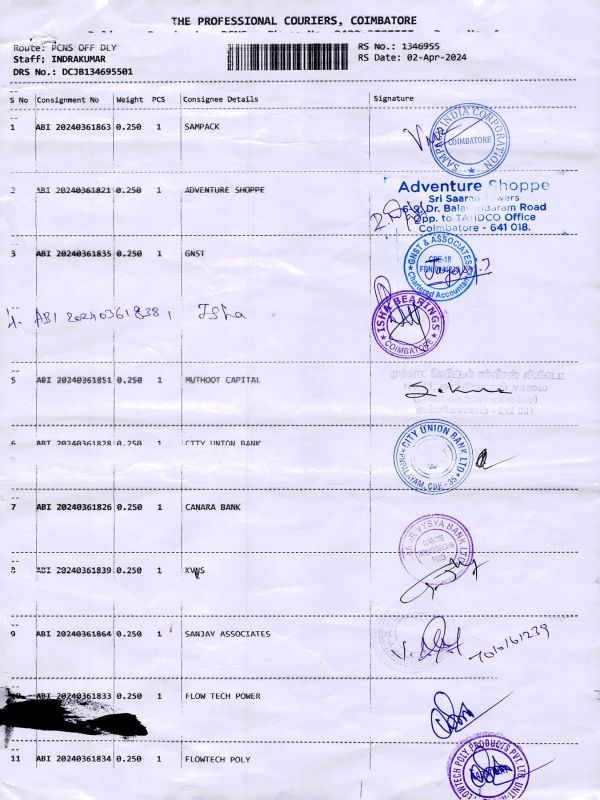 THE PROFESSIONAL COURIERS, COIMBATORE
Route: PCNS OFF DLY
Staff: INDRAKUMAR
DRS No.: DCJB134695501
RS No.: 1346955
RS Date: 02-Apr-2024
S No Consignment No Weight PCS Consignee Details Signature
1 ABI 20240361863 0.250 1 SAMPACK
SAMPACK INDIA CORPORATION
COIMBATORE
2 ABI 20240361821 0.250 1 ADVENTURE SHOPPE
Adventure Shoppe
Sri Saaran Towers
Dr. Road
Opp. to TAHDCO Office
Coimbatore - 641 018.
3 ABI 20240361835 0.250 1 GNST
GNST & ASSOCIATES
CBE-18
Chartered Accountants
4. ABI 20240361838 1 Isha
ISHA BEARINGS
COIMBATORE
5 ABI 20240361851 0.250 1 MUTHOOT CAPITAL
6 ABI 20240361828 0.250 1 CITY UNION BANK
CITY UNION BANK LTD
CBE - 35
7 ABI 20240361826 0.250 1 CANARA BANK
VYSYA BANK LTD
8 ABI 20240361839 0.250 1 KVNS
9 ABI 20240361864 0.250 1 SANJAY ASSOCIATES
10 ABI 20240361833 0.250 1 FLOW TECH POWER
11 ABI 20240361834 0.250 1 FLOWTECH POLY
FLOWTECH POLY PRODUCTS PVT LTD